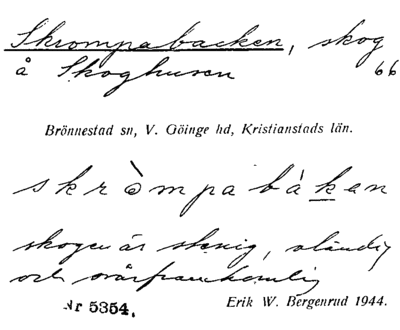 Skrompabacken, skog
å Skoghusen 66
Brönnestad sn, V. Göinge hd, Kristianstads län.
skròmpabàkan
skogen är stenig, oländig
och svårframkomlig
Nr 5354. Erik W. Bergenrud 1944.